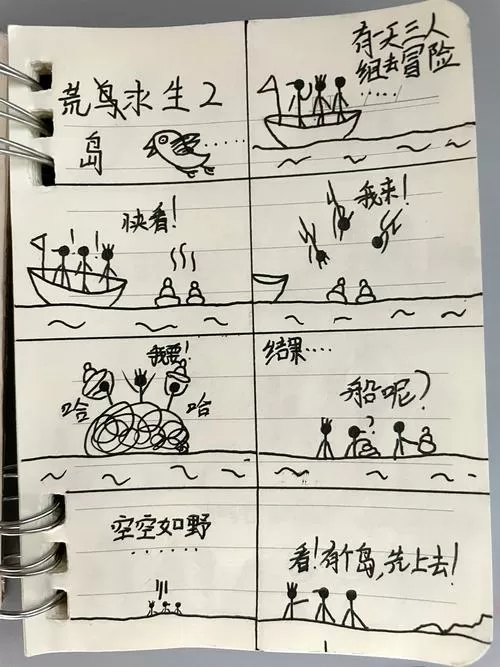 荒鸟求生2
岛
有一天三人
组去冒险
……
快看!
我来!
我要!
哈
哈
结果····
船呢?
?
空空如野
······
看!有个岛,先上去!